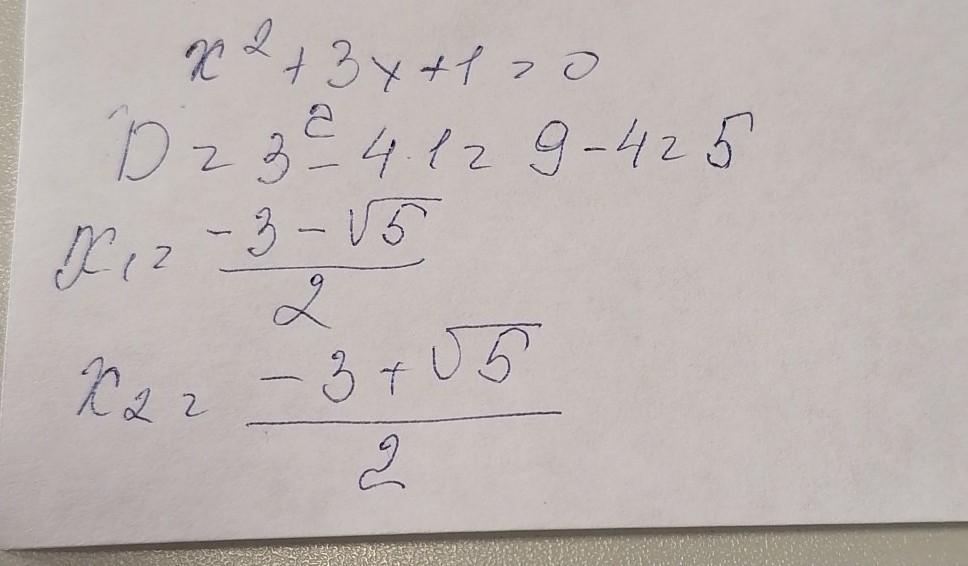 x² + 3x + 1 = 0
D = 3² - 4·1 = 9 - 4 = 5
x₁ = (-3 - √5)/2
x₂ = (-3 + √5)/2